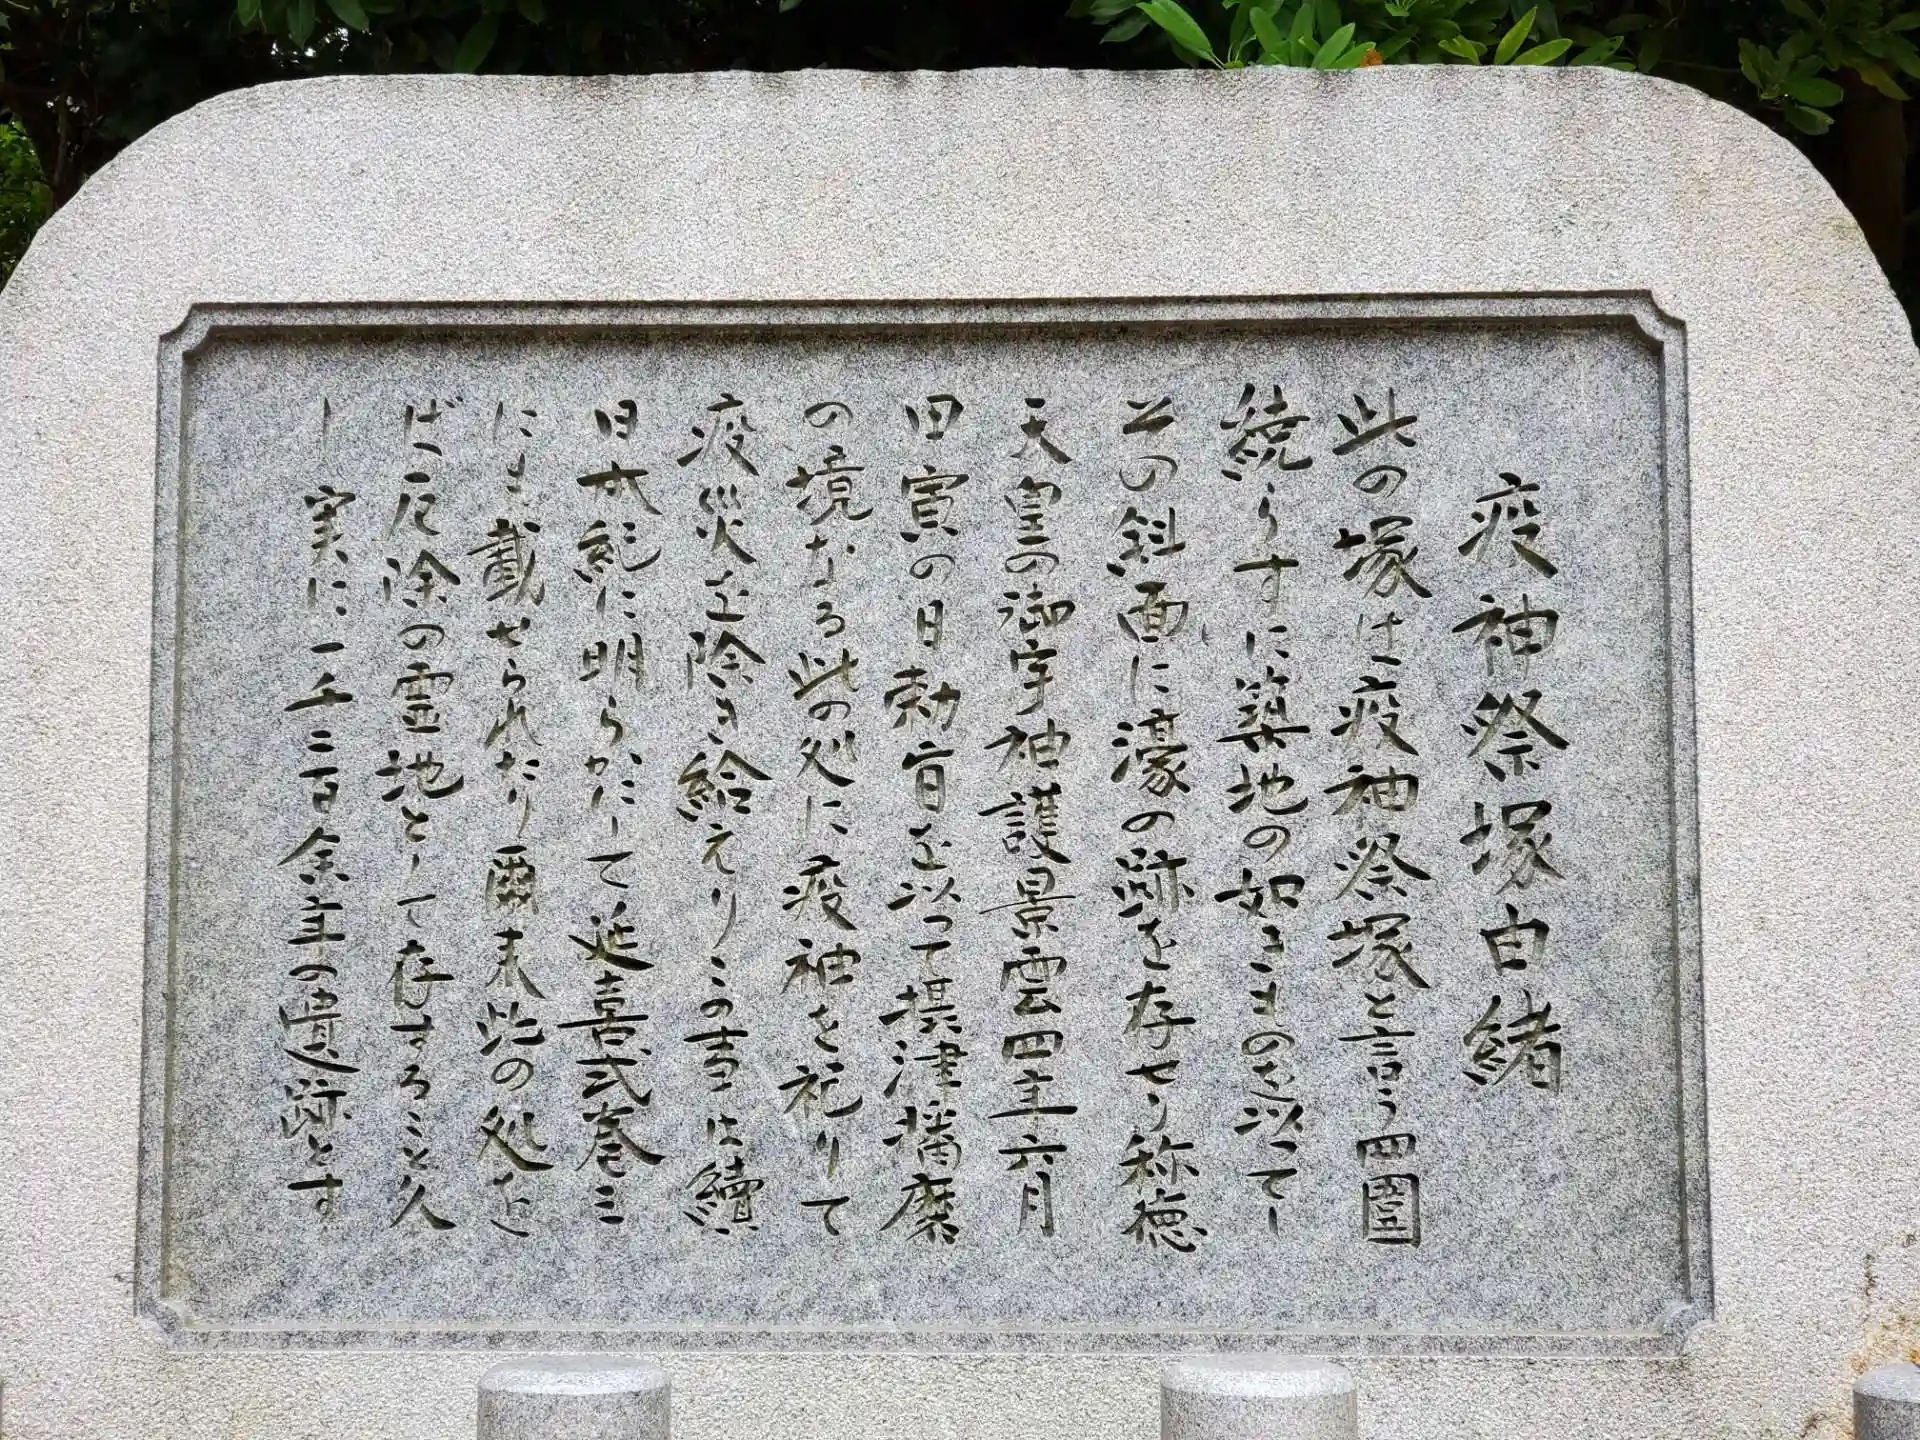 疫神祭塚由緒
此の塚は疫神祭塚と言う四圍
繞らすに築地の如きものを以てし
その斜面に濠の跡を存せり称徳
天皇の御宇神護景雲四年六月
甲寅の日勅旨を以って摂津播磨
の境なる此の処に疫神を祀りて
疫災を除き給えりこの事は續
日本紀に明らかにして延喜式巻三
にも載せられたり爾来此の処を
ば厄除の霊地として存すること久
し実に一千二百余年の遺跡とす